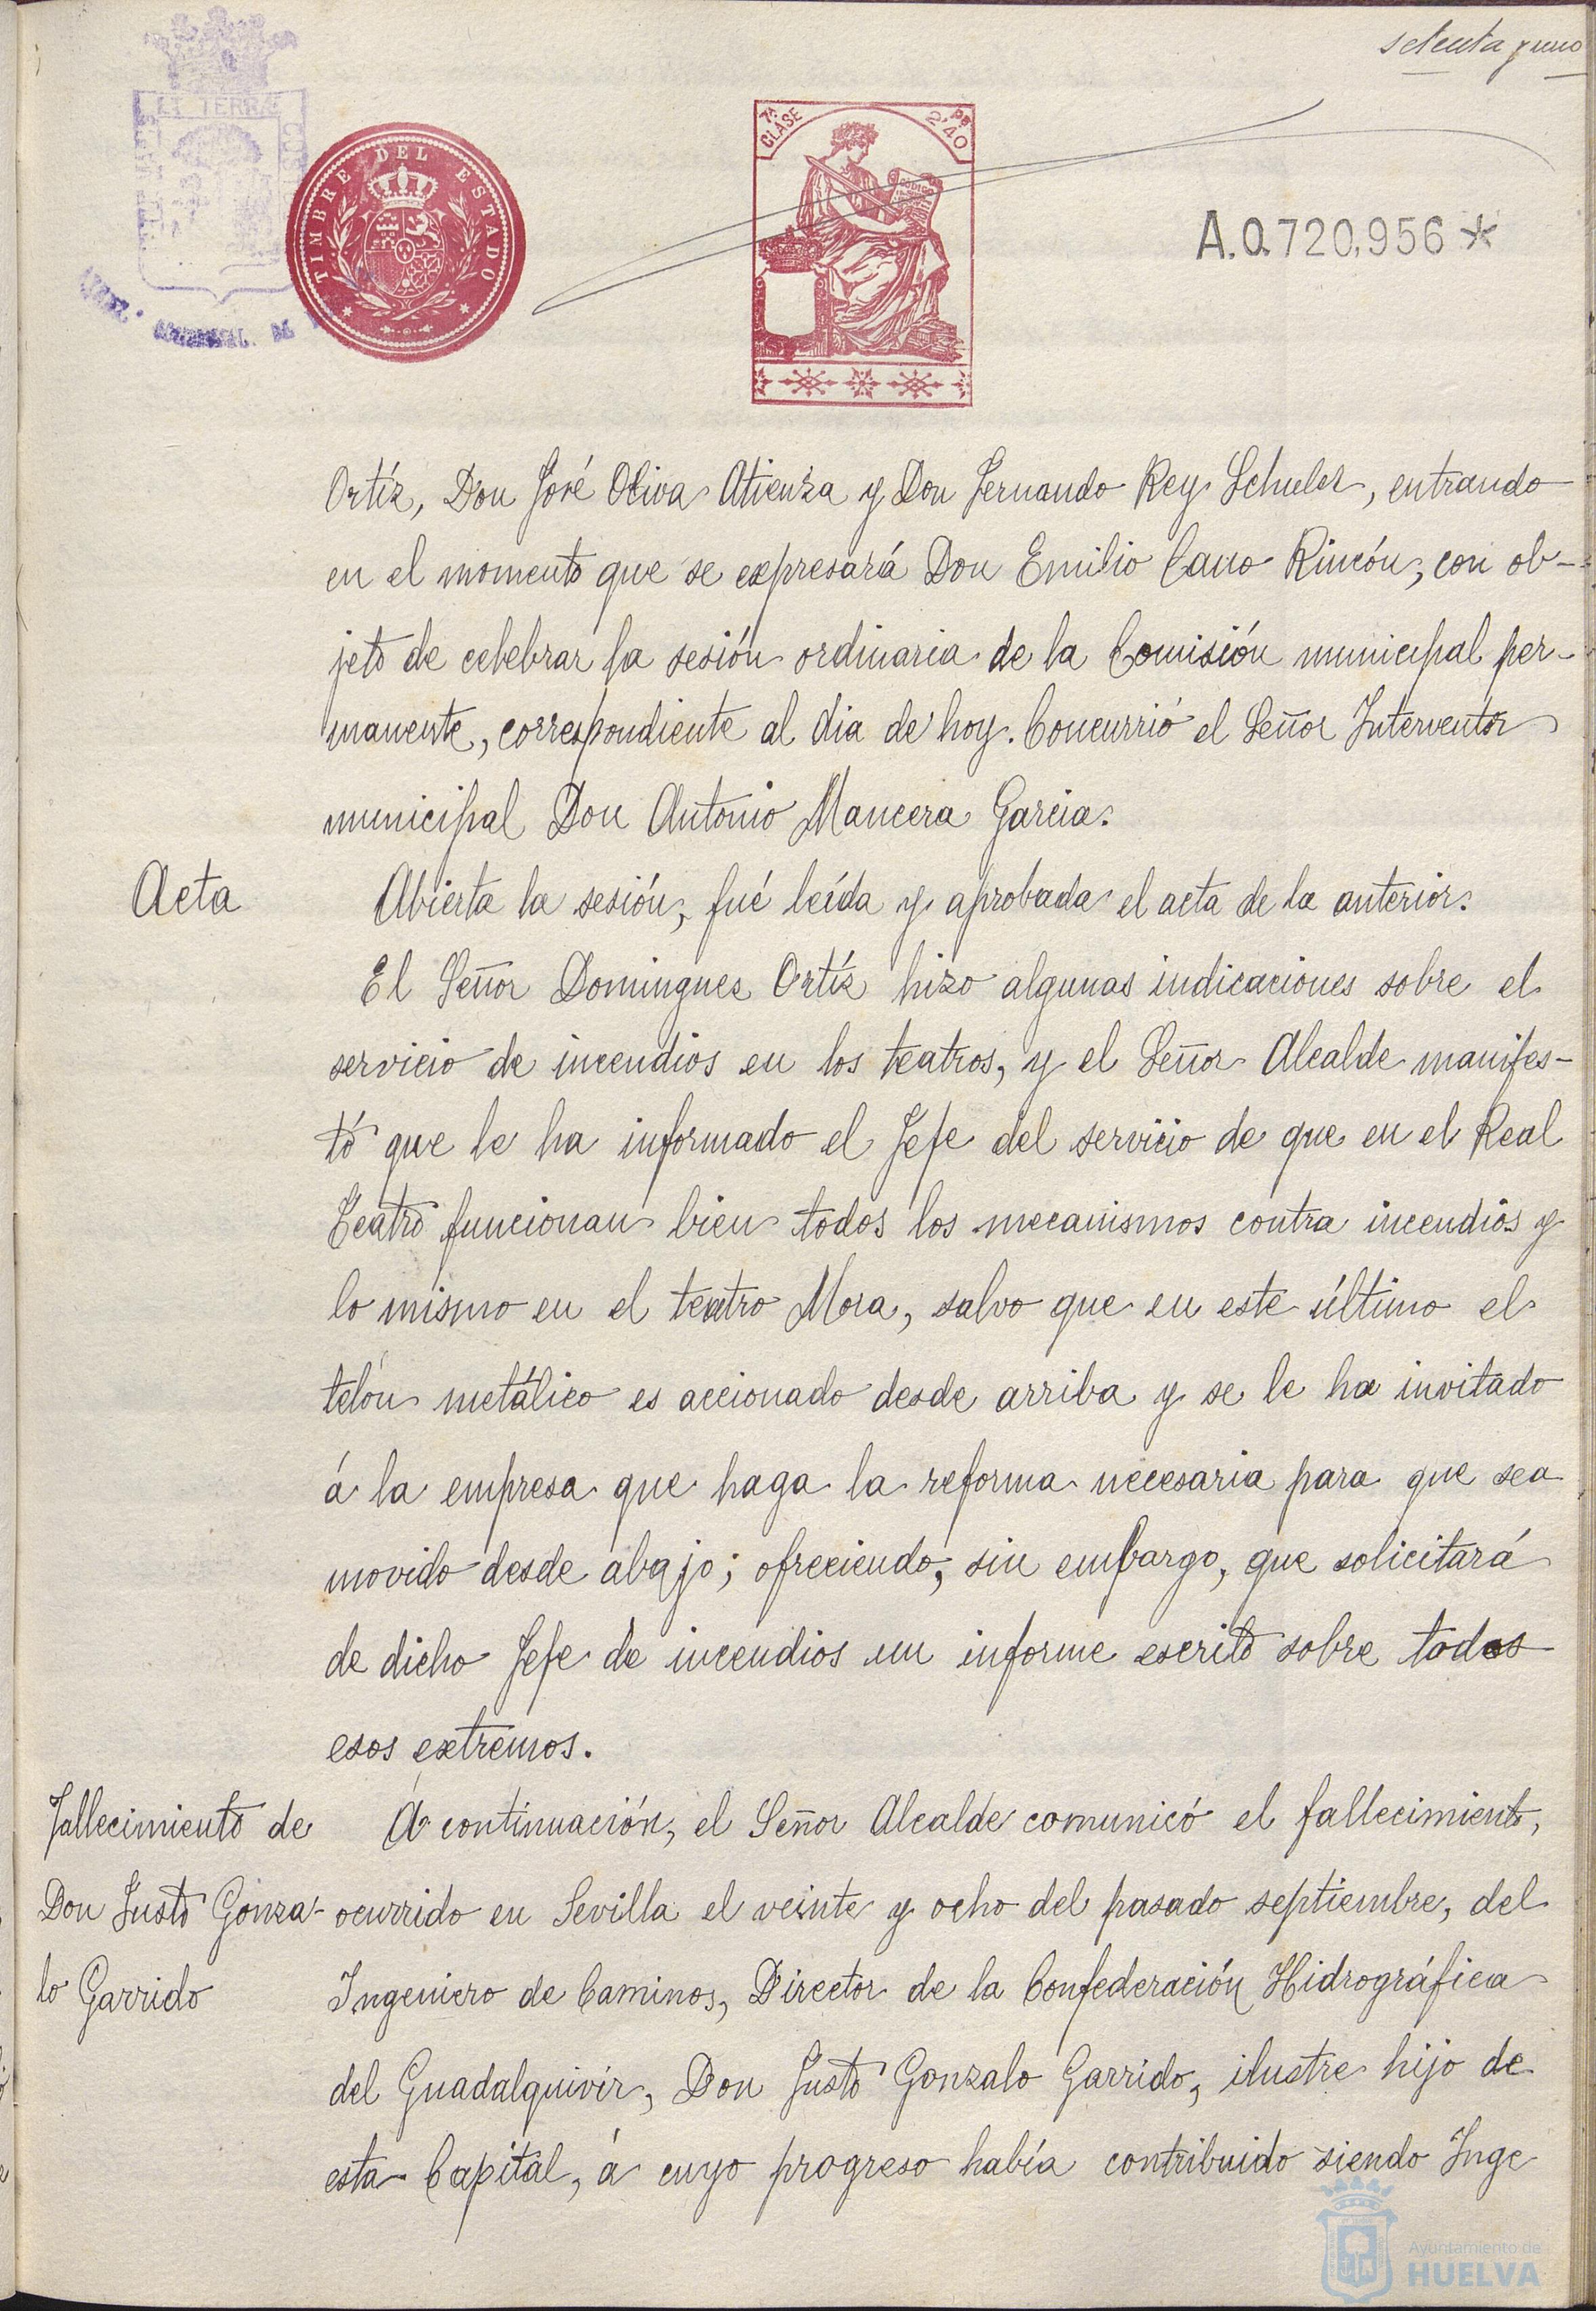 setenta y uno
ET TERRÆ
TIMBRE DEL ESTADO
7ª CLASE
2'40
A.0.720,956*
Ortíz, Don José Oliva Atienza y Don Fernando Rey Schuler, entrando
en el momento que se expresará Don Emilio Cano Rincón, con ob-
jeto de celebrar la sesión ordinaria de la Comisión municipal per-
manente, correspondiente al dia de hoy. Concurrió el Señor Interventor
municipal Don Antonio Mancera Garcia.
Acta
Abierta la sesión, fué leída y aprobada el acta de la anterior.
El Señor Domínguez Ortíz hizo algunas indicaciones sobre el
servicio de incendios en los teatros, y el Señor Alcalde manifes-
tó que le ha informado el Jefe del servicio de que en el Real
Teatro funcionan bien todos los mecanismos contra incendios y
lo mismo en el teatro Mora, salvo que en este último el
telón metálico es accionado desde arriba y se le ha invitado
á la empresa que haga la reforma necesaria para que sea
movido desde abajo; ofreciendo, sin embargo, que solicitará
de dicho Jefe de incendios un informe escrito sobre todos
esos extremos.
Fallecimiento de
Don Justo Gonza-
lo Garrido
A continuación, el Señor Alcalde comunicó el fallecimiento,
ocurrido en Sevilla el veinte y ocho del pasado septiembre, del
Ingeniero de Caminos, Director de la Confederación Hidrográfica
del Guadalquivir, Don Justo Gonzalo Garrido, ilustre hijo de
esta Capital, á cuyo progreso había contribuido siendo Inge
Ayuntamiento de
HUELVA